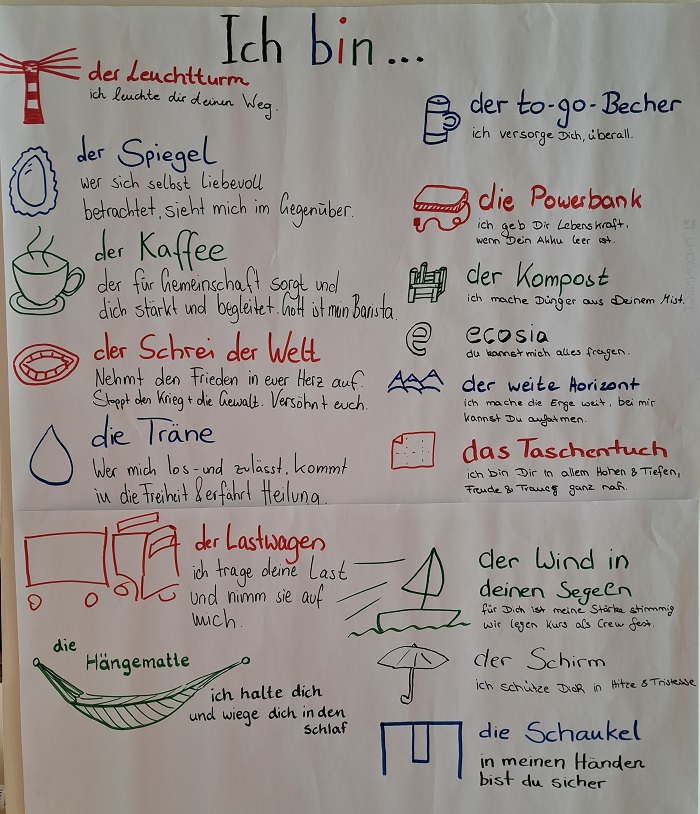 Ich bin...
der Leuchtturm
ich leuchte dir deinen Weg.
der Spiegel
wer sich selbst liebevoll
betrachtet, sieht mich im Gegenüber.
der Kaffee
der für Gemeinschaft sorgt und
dich stärkt und begleitet. Gott ist mein Barista.
der Schrei der Welt
Nehmt den Frieden in euer Herz auf.
Stoppt den Krieg + die Gewalt. Versöhnt euch.
die Träne
Wer mich los- und zulässt, kommt
in die Freiheit & erfährt Heilung.
der Lastwagen
ich trage deine Last
und nimm sie auf
mich.
die
Hängematte
ich halte dich
und wiege dich in den
Schlaf
der to-go-Becher
ich versorge Dich, überall.
die Powerbank
ich geb Dir Lebenskraft,
wenn Dein Akku leer ist.
der Kompost
ich mache Dünger aus Deinem Mist.
e
ecosia
du kannst mich alles fragen.
der weite Horizont
ich mache die Enge weit, bei mir
kannst Du aufatmen.
das Taschentuch
ich bin Dir in allem Hohen & Tiefen,
Freude & Trauer ganz nah.
der Wind in
deinen Segeln
für Dich ist meine Stärke stimmig
wir legen Kurs als Crew fest.
der Schirm
ich schütze Dich in Hitze & Tristesse
die Schaukel
in meinen Händen
bist du sicher